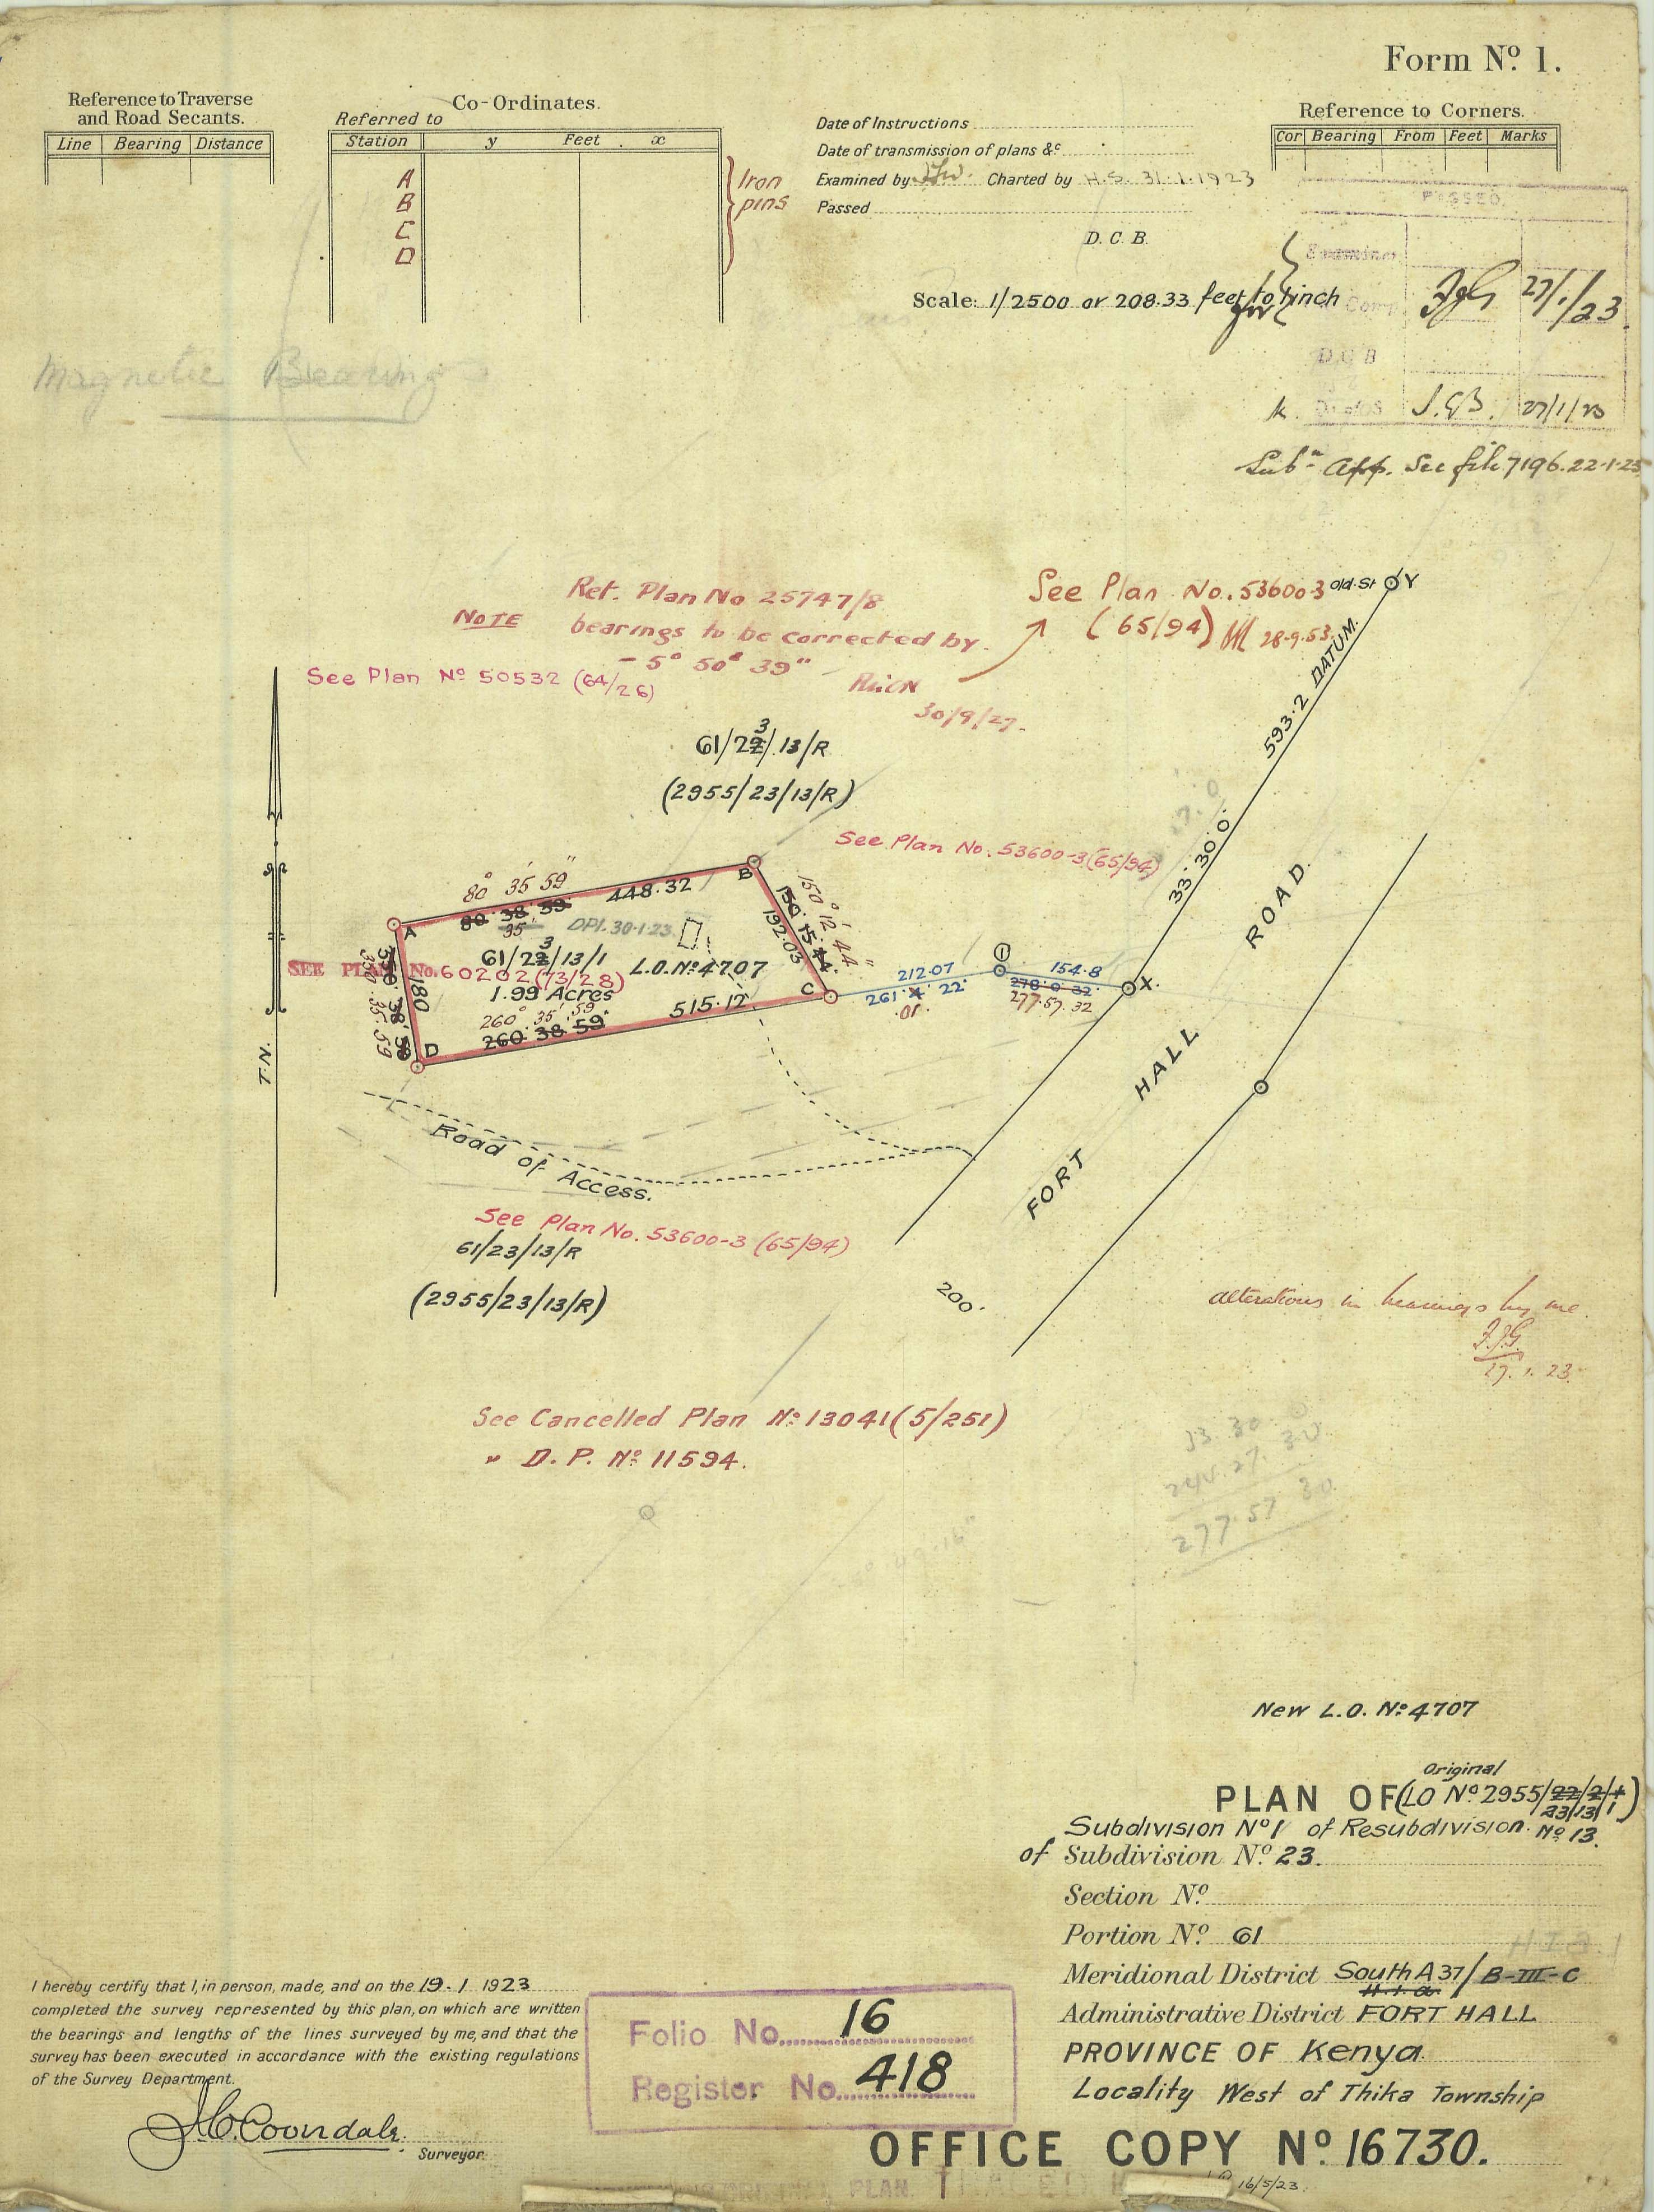 Form Nº 1.
Reference to Traverse
and Road Secants.
Line Bearing Distance
Co-Ordinates.
Referred to
Station y Feet x
A
B
C
D
Iron
pins
Date of Instructions
Date of transmission of plans &c
Examined by Charted by H.S. 31.1.1923
Passed
D. C. B.
Scale: 1/2500 or 208.33 feet to 1 inch
Reference to Corners.
Cor Bearing From Feet Marks
PASSED
Examiner
Comp.
27/1/23
D.C.B
J.G.B. 27/1/23
Magnetic Bearing
Subn App. See file 7196.22.1.23
Ref. Plan No 25747/8
NOTE bearings to be corrected by
- 5° 50' 39"
30/9/27.
See Plan No. 53600-3
(65/94) 28-9-53.
Old. St Y
See Plan Nº 50532 (64/26)
61/23/13/R
(2955/23/13/R)
593.2 DATUM.
33.30.0.
See Plan No. 53600-3 (65/94)
80° 35' 59"
448.32
80. 38. 59.
35
A
B
C
D
DPI. 30.1.23
61/23/13/1
L.O. Nº 4707
SEE PLAN No. 60202 (73/28)
1.99 Acres
260° 35' 59"
260. 38 59.
515.12
150° 12' 44"
150. 15. 44.
192.03
180
350. 35. 59
350. 38. 59
212.07
261. 4. 22
.01.
1
154.8
278. 0. 32.
277. 57. 32
X.
T.N.
FORT HALL ROAD.
200.
Road of Access.
See Plan No. 53600-3 (65/94)
61/23/13/R
(2955/23/13/R)
alterations in bearings by me.
F.J.G.
27. 1. 23.
See Cancelled Plan Nº 13041 (5/251)
" D. P. Nº 11594.
33. 30. 0
244. 27. 30
277. 57 30
New L.O. Nº 4707
Original
PLAN OF (LO Nº 2955/22/2/1)
23/13/1
Subdivision Nº 1 of Resubdivision. Nº 13.
of Subdivision Nº 23.
Section Nº
Portion Nº 61
Meridional District South A 37/B-III-C
H.1.a.
Administrative District FORT HALL
PROVINCE OF Kenya
Locality West of Thika Township
I hereby certify that I, in person, made, and on the 19.1 1923
completed the survey represented by this plan, on which are written
the bearings and lengths of the lines surveyed by me, and that the
survey has been executed in accordance with the existing regulations
of the Survey Department.
Surveyor
Folio No. 16
Register No. 418
OFFICE COPY Nº 16730.
16/5/23.
PLAN.